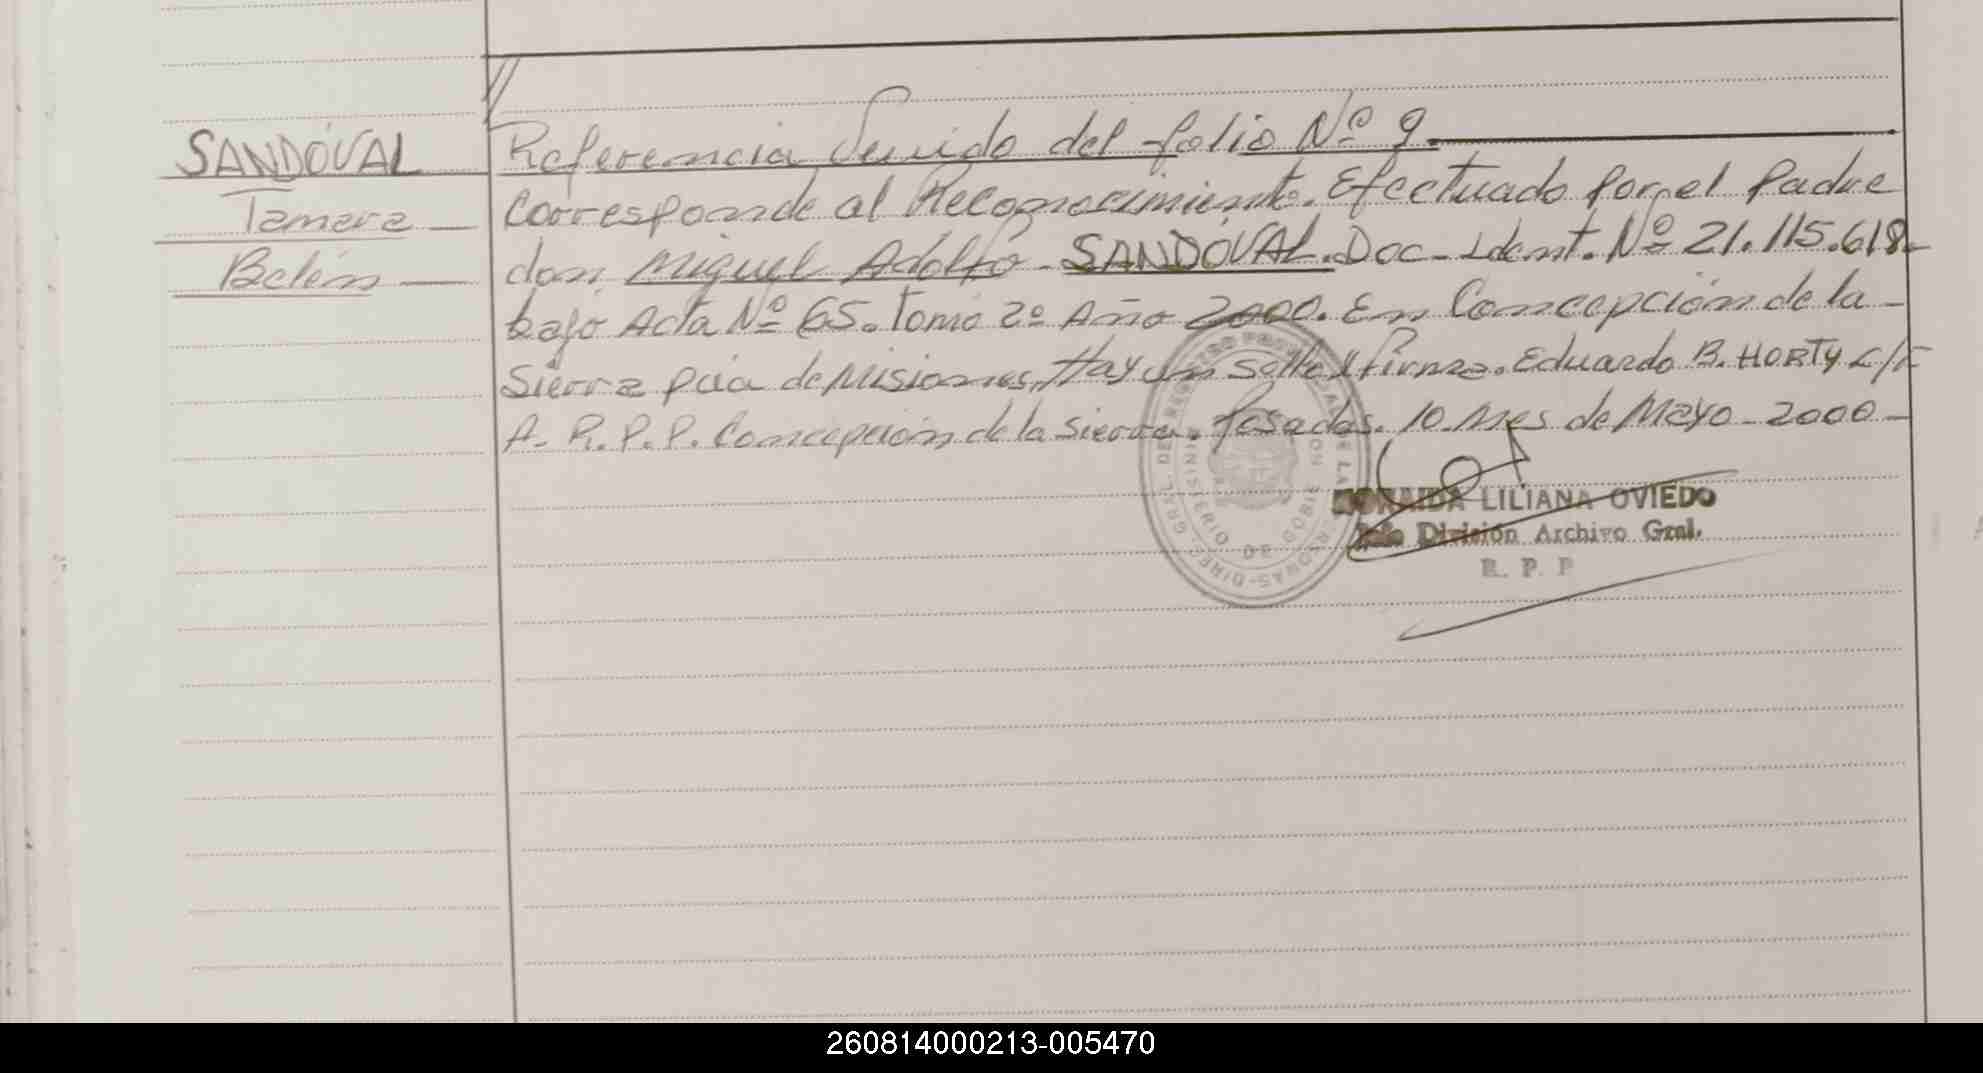 SANDOVAL
Tamara
Belén
Referencia Venido del folio Nº 9.
Corresponde al Reconocimiento. Efectuado por el Padre
don Miguel Adolfo - SANDOVAL. Doc - Ident. Nº 21.115.618 -
bajo Acta Nº 65. Tomo 2º Año 2000. En Concepción de la -
Sierra pcia de Misiones, Hay un Sello y firma. Eduardo B. HORTY
A. R. P. P. Concepción de la Sierra. Posadas. 10 Mes de Mayo - 2000 -
LILIANA OVIEDO
División Archivo Gral.
R. P. P
260814000213-005470